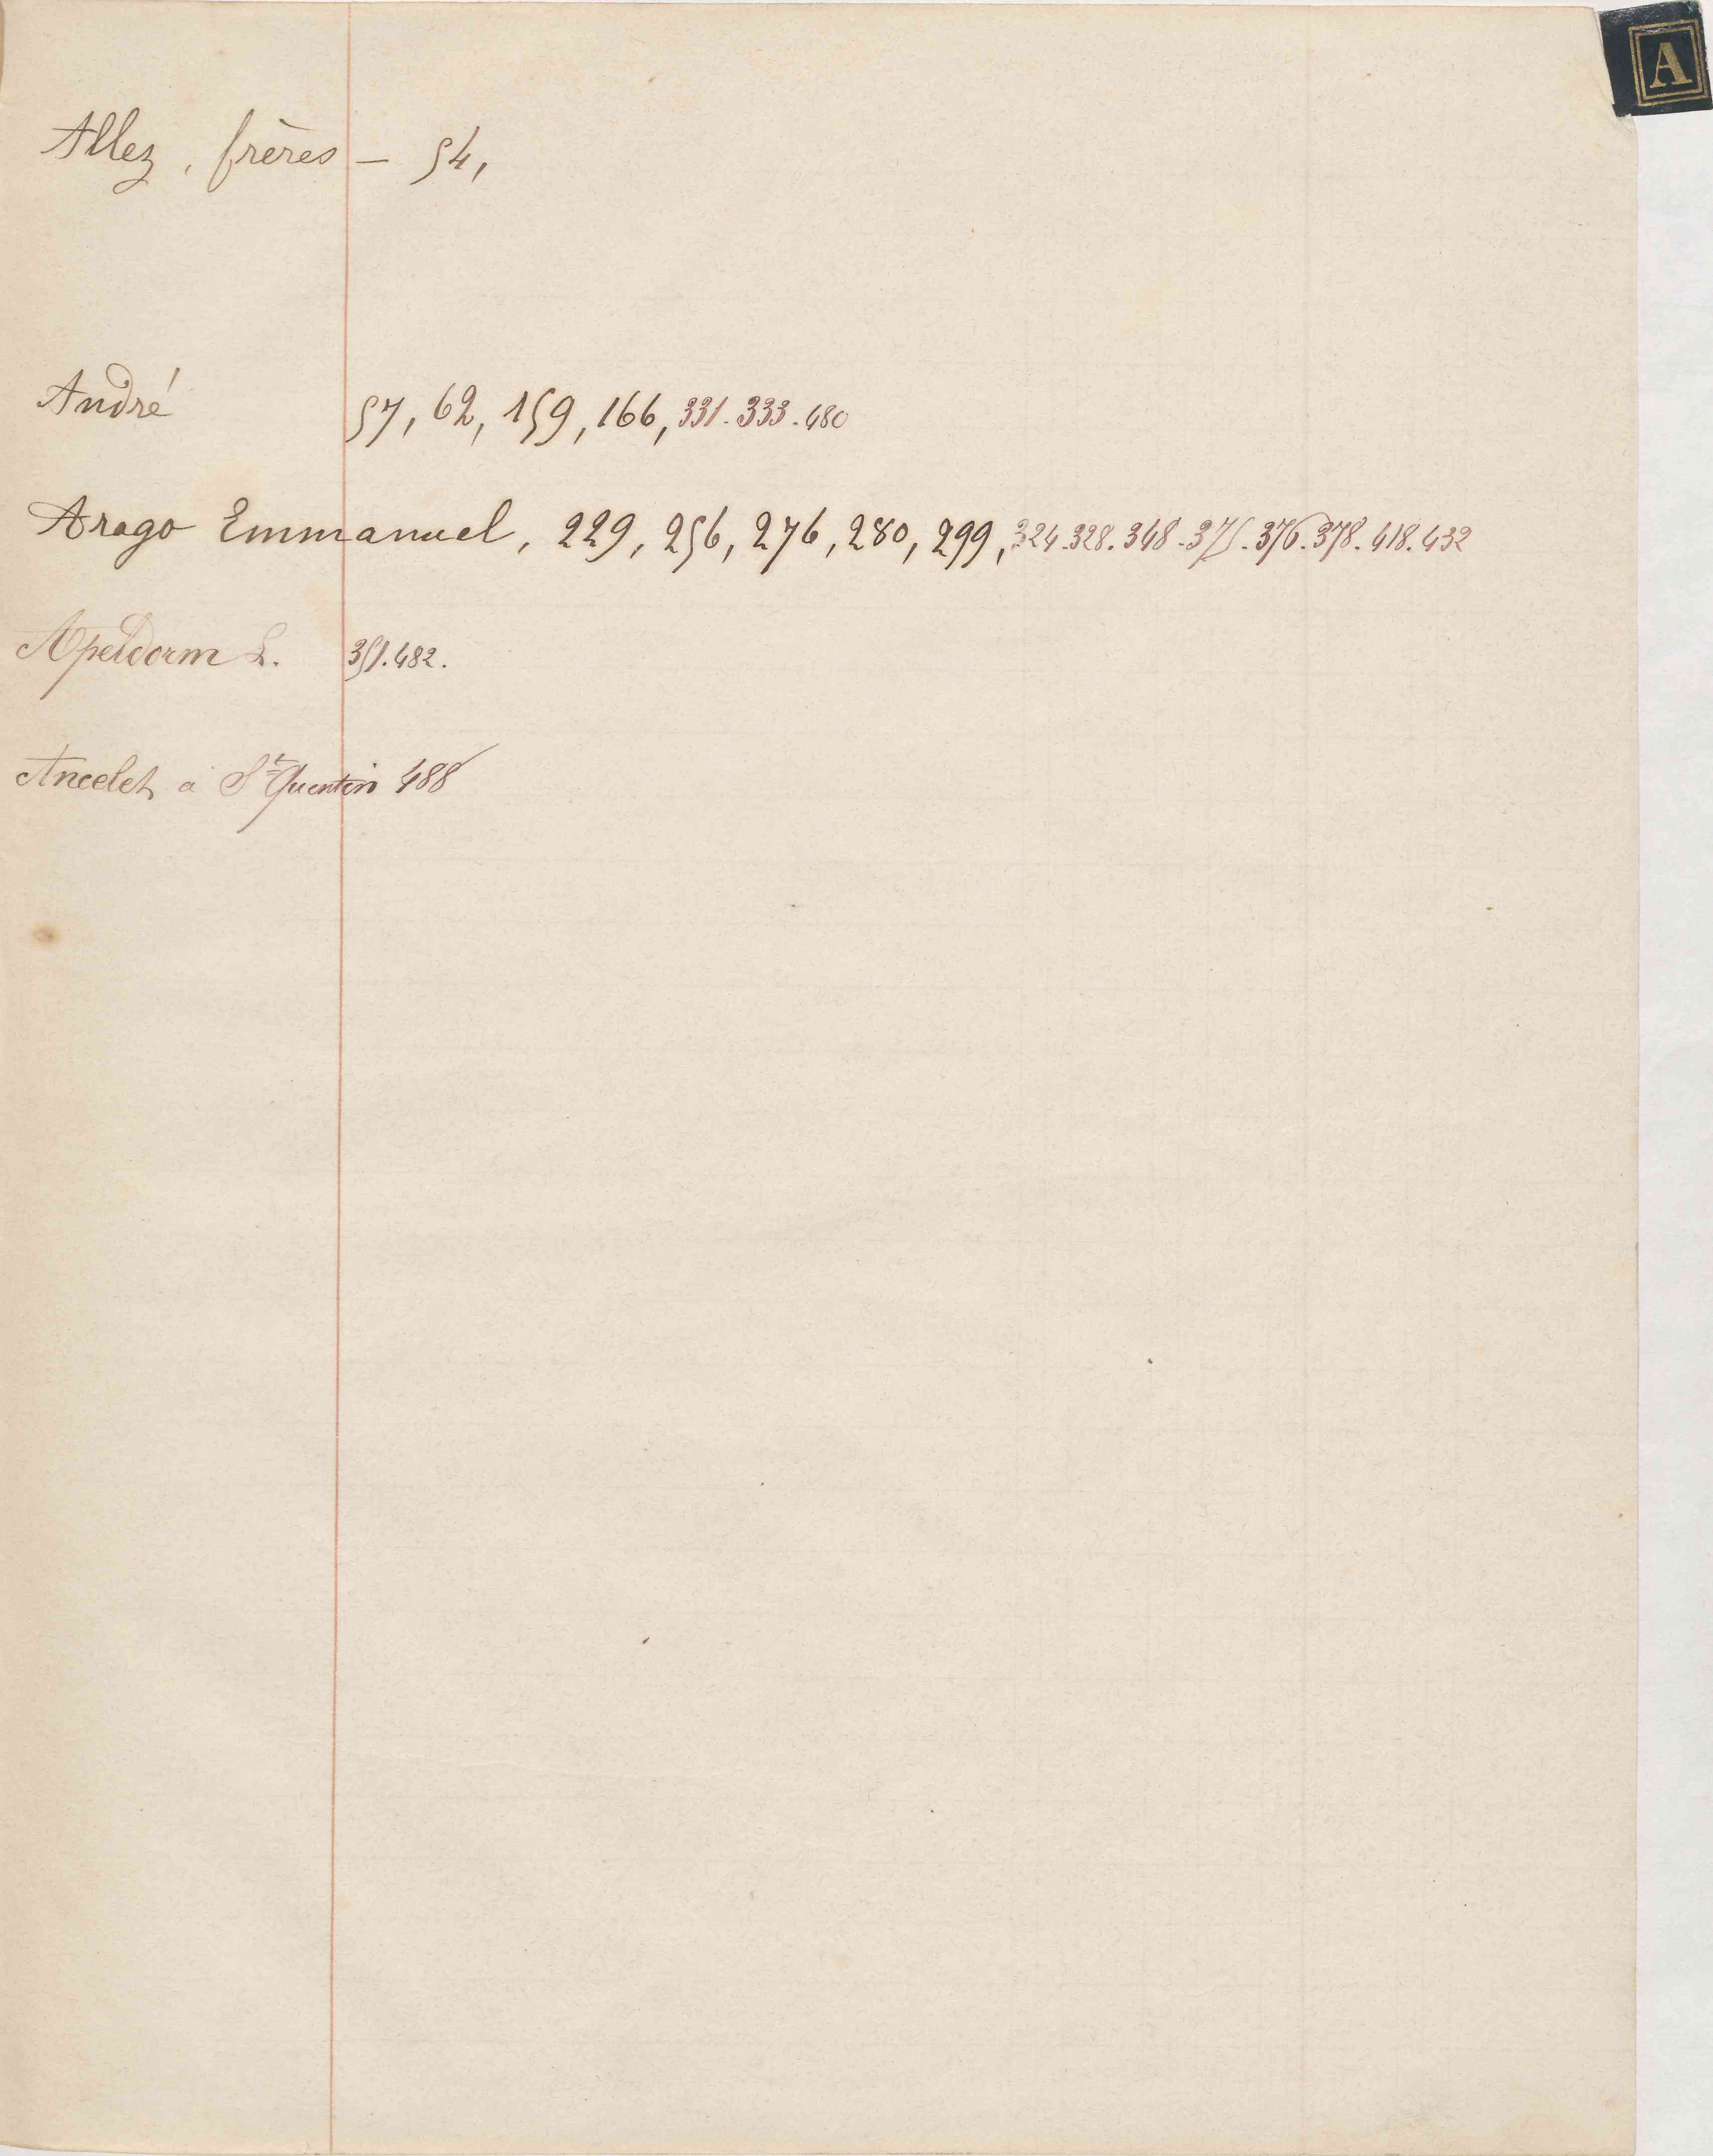 A
Allez, frères — 54,
André 57, 62, 159, 166, 331. 333. 480
Arago Emmanuel, 229, 256, 276, 280, 299, 324. 328. 348. 375. 376. 378. 418. 432
Apeldorm L. 351. 482.
Ancelet a St Quentin 488